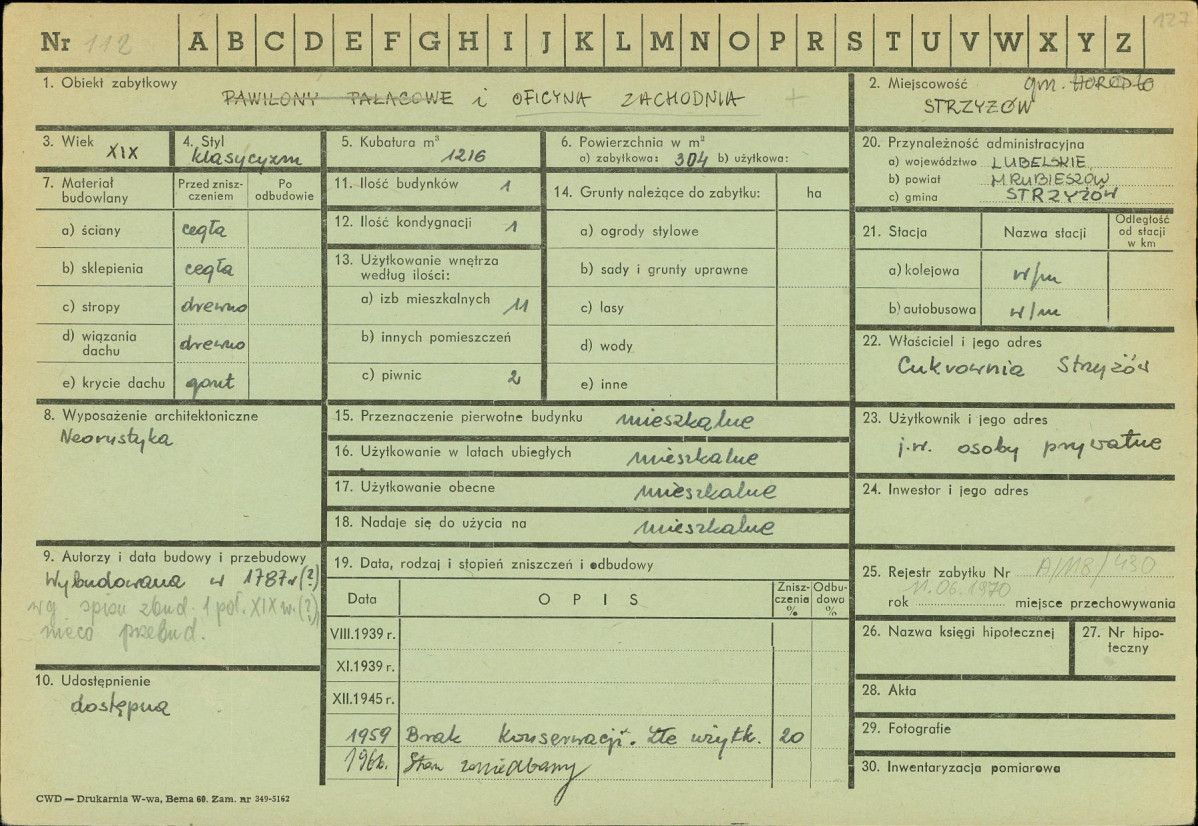 Nr 112 A B C D E F G H I J K L M N O P R S T U V W X Y Z 127
1. Obiekt zabytkowy
PAWILONY PAŁACOWE i OFICYNA ZACHODNIA +
2. Miejscowość gm. HORODŁO
STRZYŻÓW
3. Wiek XIX
4. Styl klasycyzm
5. Kubatura m³ 1216
6. Powierzchnia w m²
a) zabytkowa: 304 b) użytkowa:
20. Przynależność administracyjna
a) województwo LUBELSKIE
b) powiat HRUBIESZÓW
c) gmina STRZYŻÓW
7. Materiał budowlany
Przed zniszczeniem
Po odbudowie
a) ściany cegła
b) sklepienia cegła
c) stropy drewno
d) wiązania dachu drewno
e) krycie dachu gont
11. Ilość budynków 1
12. Ilość kondygnacji 1
13. Użytkowanie wnętrza
według ilości:
a) izb mieszkalnych 11
b) innych pomieszczeń
c) piwnic 2
14. Grunty należące do zabytku: ha
a) ogrody stylowe
b) sady i grunty uprawne
c) lasy
d) wody
e) inne
21. Stacja
Nazwa stacji
Odległość
od stacji
w km
a) kolejowa w/m
b) autobusowa w/m
22. Właściciel i jego adres
Cukrownia Strzyżów
8. Wyposażenie architektoniczne
Neorustyka
15. Przeznaczenie pierwotne budynku mieszkalne
16. Użytkowanie w latach ubiegłych mieszkalne
17. Użytkowanie obecne mieszkalne
18. Nadaje się do użycia na mieszkalne
23. Użytkownik i jego adres
j.w. osoby prywatne
24. Inwestor i jego adres
9. Autorzy i data budowy i przebudowy
Wybudowana w 1787 r (?)
wg spisu zbud. 1 poł. XIX w. (?)
nieco przebud.
10. Udostępnienie
dostępna
19. Data, rodzaj i stopień zniszczeń i odbudowy
Data
OPIS
Zniszczenia %
Odbudowa %
VIII.1939 r.
XI.1939 r.
XII.1945 r.
1959 Brak konserwacji. Złe użytk. 20
196 Stan zaniedbany
25. Rejestr zabytku Nr A/118/430
11.06.1970
rok miejsce przechowywania
26. Nazwa księgi hipotecznej
27. Nr hipoteczny
28. Akta
29. Fotografie
30. Inwentaryzacja pomiarowa
CWD — Drukarnia W-wa, Bema 60. Zam. nr 349-5162